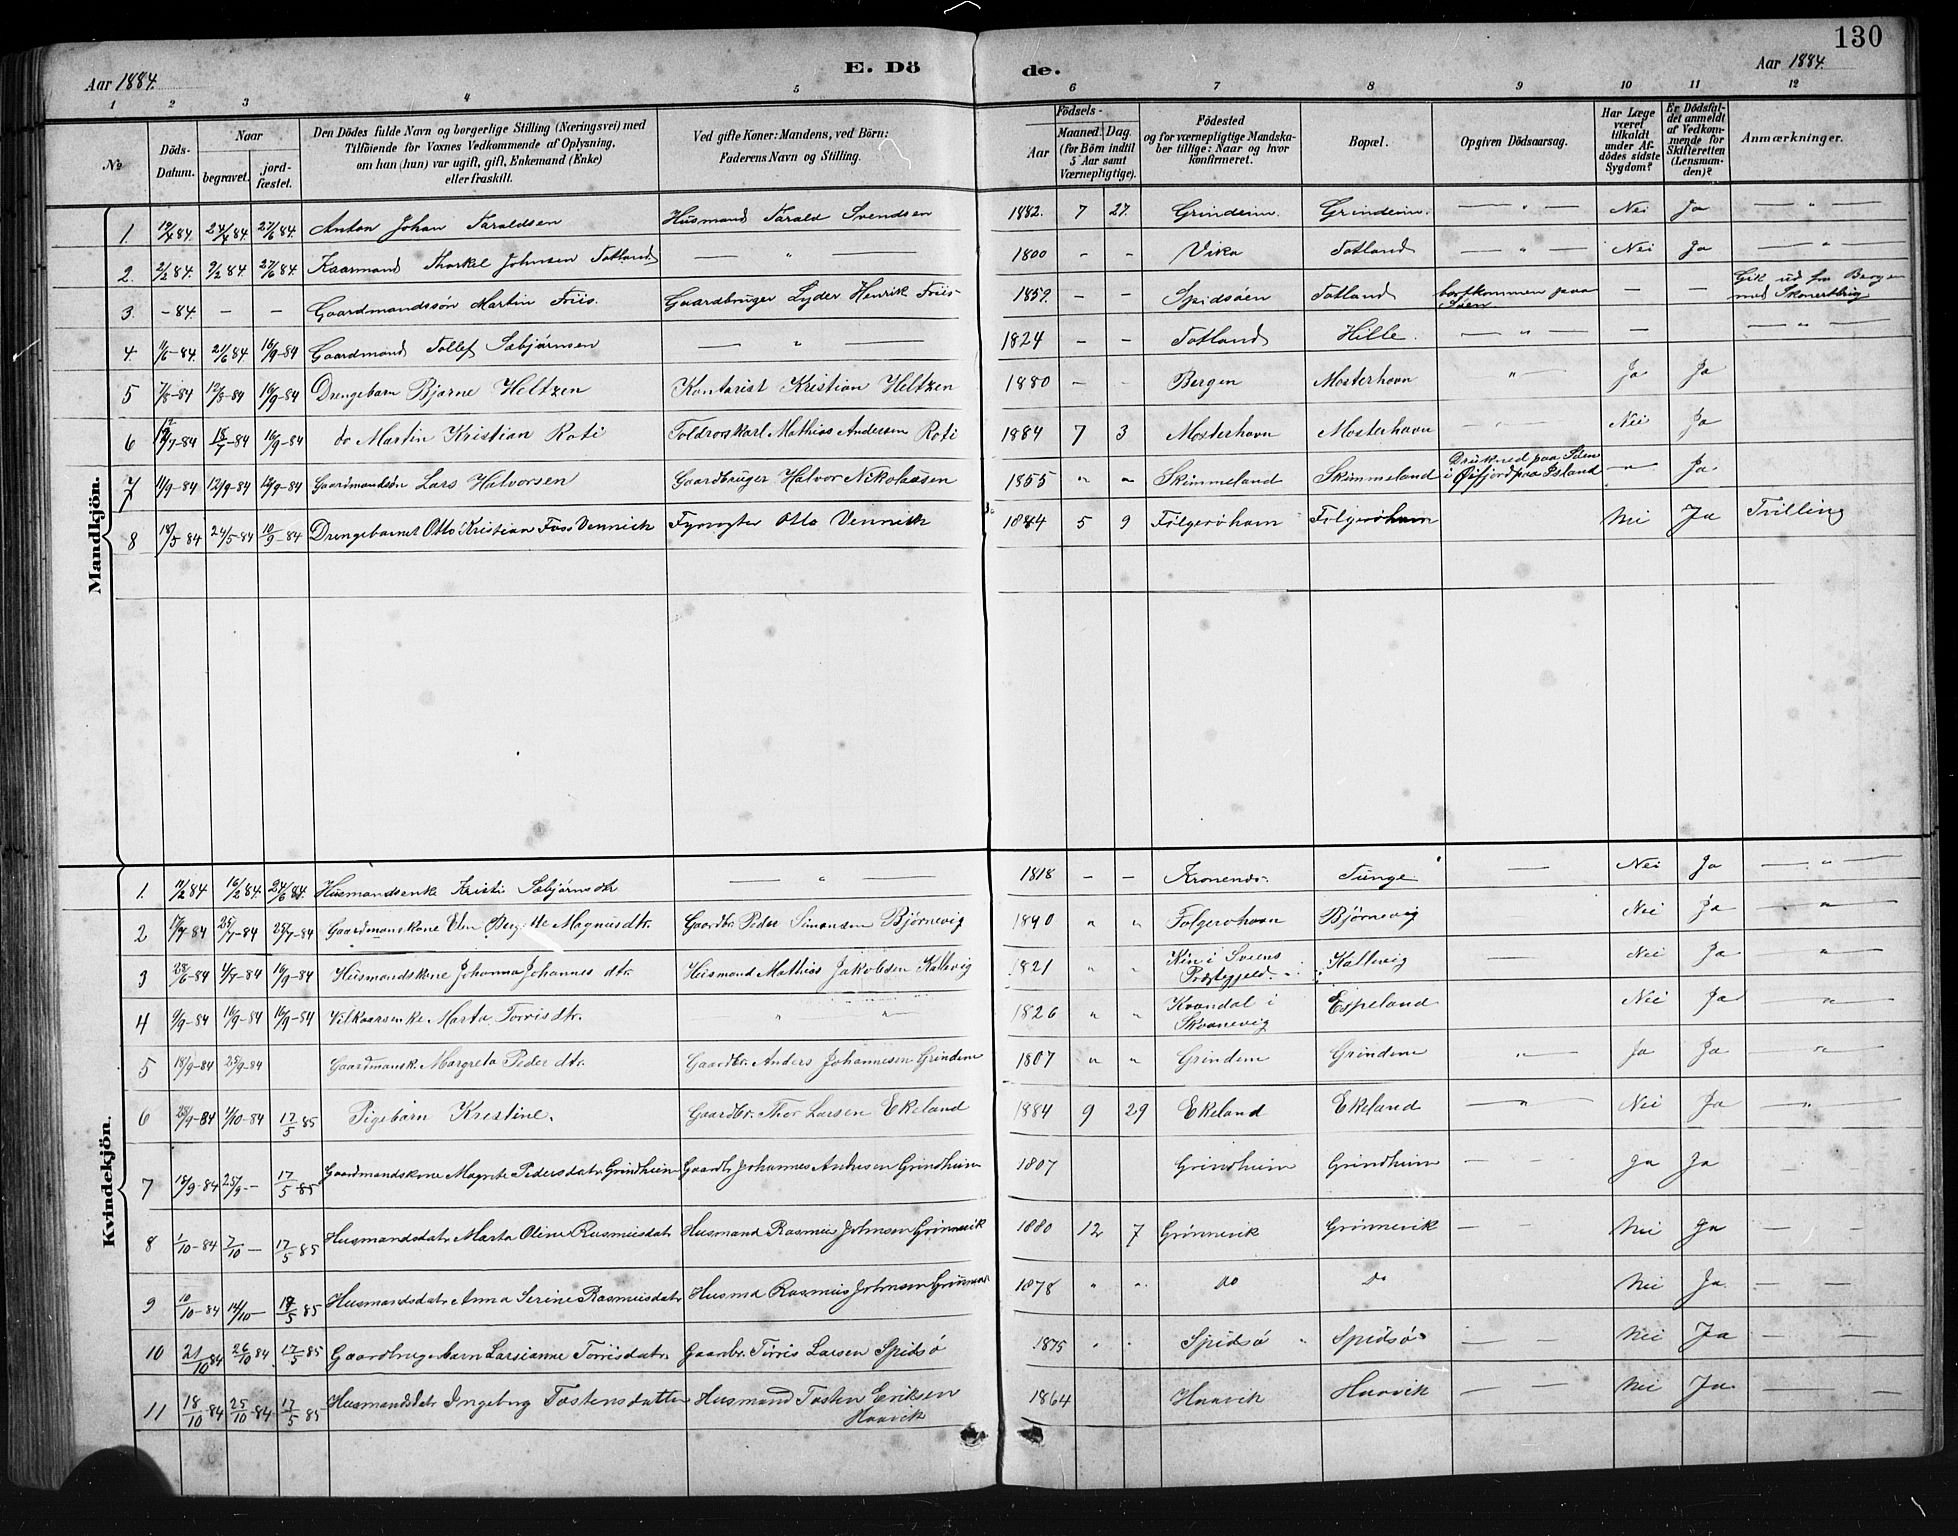 130
Aar 1884.
E. Döde.
Aar 1884.
1 2 3 4 5 6 7 8 9 10 11 12
No
Döds-Datum.
Naar
begravet.
jordfæstet.
Den Dödes fulde Navn og borgerlige Stilling (Næringsvei) med
Tilföiende for Voxnes Vedkommende af Oplysning,
om han (hun) var ugift, gift, Enkemand (Enke)
eller fraskilt.
Ved gifte Koner: Mandens, ved Börn:
Faderens Navn og Stilling.
Födsels-
Aar
Maaned. Dag.
(for Börn indtil
5 Aar samt
Værnepligtige).
Födested
og for værnepligtige Mandska-
ber tillige: Naar og hvor
konfirmeret.
Bopæl.
Opgiven Dödsaarsag.
Har Læge
været
tilkaldt
under Af-
dödes sidste
Sygdom?
Er Dödsfal-
det anmeldt
af Vedkom-
mende for
Skifteretten
(Lensman-
den)?
Anmærkninger.
Mandkjön.
1. 19/4 84. 24/4 84. 27/6 84. Anton Johan Taraldsen Husmand Tarald Svendsen 1882. 7 27. Grindeim. Grindeim. — " — Nei Ja — " —
2. 2/2 84. 9/2 84. 27/6 84 Kaarmand Thorkel Johnsen Totland — " — 1800 - - Vika Totland — " — Nei Ja — " —
3. - 84. - - Gaardmandssön Martin Friis. Gaardbruger Lyder Henrik Friis 1859. - - Spidsöen Totland bortkommen paa Söen — — Gik ud fra Bergen med Skonertbrig
4. 11/6-84. 21/6 84. 16/9-84 Gaardmand Tollef Sæbjörnsen — " — 1824 - - Totland Hille. — " — — — " —
5 7/8-84 12/8-84 16/9-84 Drengebarn Bjarne Heltzen Kontorist Kristian Heltzen 1880 - - Bergen Mosterhavn " Ja Ja
6 12/7-84 18/7-84 16/9-84 do Martin Kristian Roti Toldroskarl Mathias Andersen Roti 1884 7 3 Mosterhavn Mosterhavn Nei Ja
7 11/9-84 12/9-84 14/9-84 Gaardmandsön Lars Halvorsen Gaardbruger Halvor Nikolaisen 1855 " " Skimmeland Skimmeland Drukned paa Söen i Öifjord paa Island — " — Ja
8 18/5 84 24/5-84 10/9-84 Drengebarnet Otto Kristian Foss Vennick Fyrvogter Otto Vennick 1884 5 9 Fölgeröhavn Fölgeröhavn Nei Ja Tvilling
Kvindekjön.
1. 11/2 84 16/2 84. 24/6 84. Husmandsenke Kristi Sæbjörnsdtr — " — 1818 - - Kronenes. Tunge. — Nei Ja — " —
2 17/7 84 25/7-84 25/7-84 Gaardmanskone Magnusdtr. Gaardbr. Peder Simonsen Björnevig 1840 " " Folgerohavn Björnevig Nei Ja "
3 28/6-84 4/7-84 16/9-84 Husmandskone Johanna Johannes dtr. Husmand Mathias Jakobsen Kallevig 1821 " " i Sveens Præstegjeld. Kallevig — Nei Ja "
4 9/9-84 16/9-84 16/9-84 Vilkaarsenke Marta Torris dtr. " " 1826 " " Kvandal i Skaanevig Espeland Nei Ja "
5 18/9-84 25/9-84 Gaardmansk. Margreta Peder dtr. Gaardbr. Anders Johannesen Grindem 1807 " " Grindem Grindem " Ja Ja "
6 29/9-84 4/10-84 17/5 85 Pigebarn Kristine. Gaardbr. Thor Larsen Ekeland 1884 9 29 Ekeland Ekeland — " — Nei Ja "
7 18/9-84 25/9 - 17/5 85 Gaardmandskone Magrete Pedersdatr Grindheim Gaardb. Johannes Andresen Grindheim 1807 Grindheim Grindheim — — Ja Ja — —
8 1/10-84 7/10 - 17/5 85 Husmandsdatr Marta Oline Rasmusdatr Husmand Rasmus Johnsen Grönnevik 1880 12 7 Grönnevik Grönnevik — — Nei Ja
9 10/10-84 14/10 - 17/5 85 Husmandsdatr Anna Serine Rasmusdatr Husma Rasmus Johnsen 1878 " " do do Nei Ja — —
10 21/10 84 26/10 84. 17/5 85 Gaardbrugerbarn Larsianne Torrisdatr Gaardbr. Torris Larsen Spidsö 1875 " " Spidsö Spidsö — — Nei Ja — —
11 18/10-84 25/10-84 17/5 85 Husmandsdatr Ingeborg Tostensdatter Husmand Tosten Eriksen Haavik 1864 Haavik Haavik — — Nei Ja — —